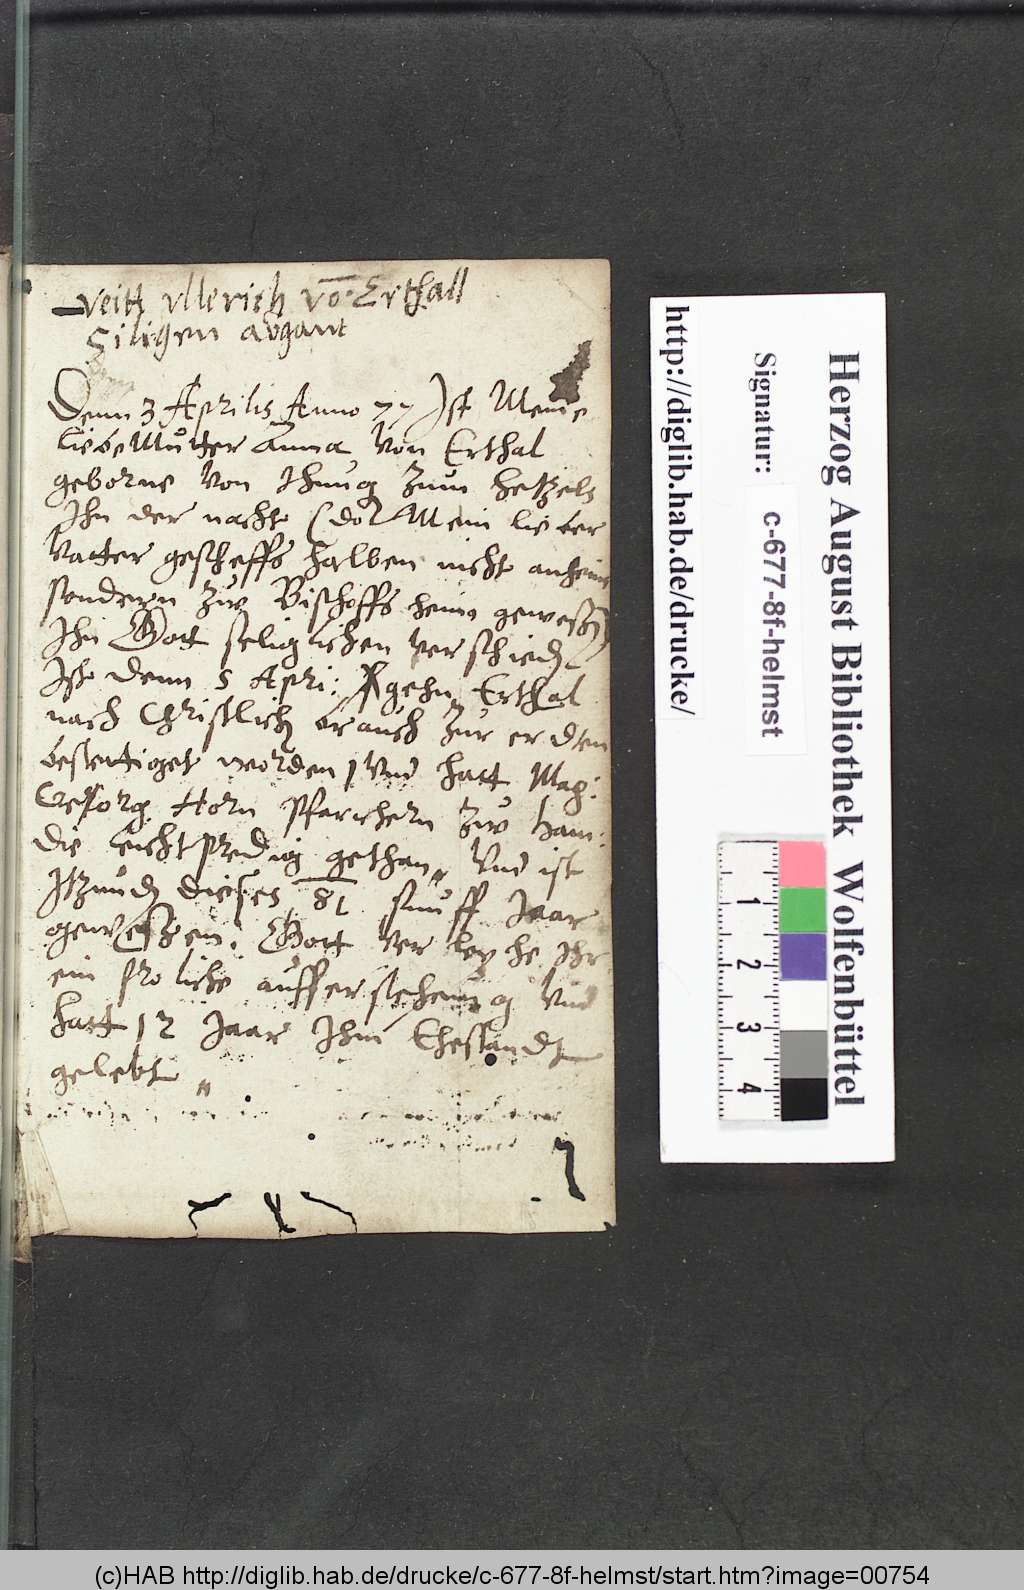 Veitt Ullerich vō Erthall
Denn 3 Aprilis Anno 77 Ist Meine
liebe Mutter Anna Von Erthal
geborne Von Zum
Ihn der nacht (do Mein lieber
Vatter gescheffts halben nicht anheim
sondern Zuw Bischoffs heim gewessen)
Ihn Gott seliglichen verschieden
Ist denn 5 Apri: gehn Erthal
nach Christlich brauch Zur erdten
bestettiget worden Vnd hatt Mag:
Georg Horn Pfarrhern Zuw Ham:
die leicht predig gethan, Vnd ist
dieses 81 Jaar
gewessen. Gott Verleyhe Ihr
ein froliche aufferstehenng Vnd
hatt 12 Jaar Ihm Ehestandt
gelebt
Herzog August Bibliothek Wolfenbüttel
Signatur: c-677-8f-helmst
http://diglib.hab.de/drucke/
1 2 3 4
(c)HAB http://diglib.hab.de/drucke/c-677-8f-helmst/start.htm?image=00754